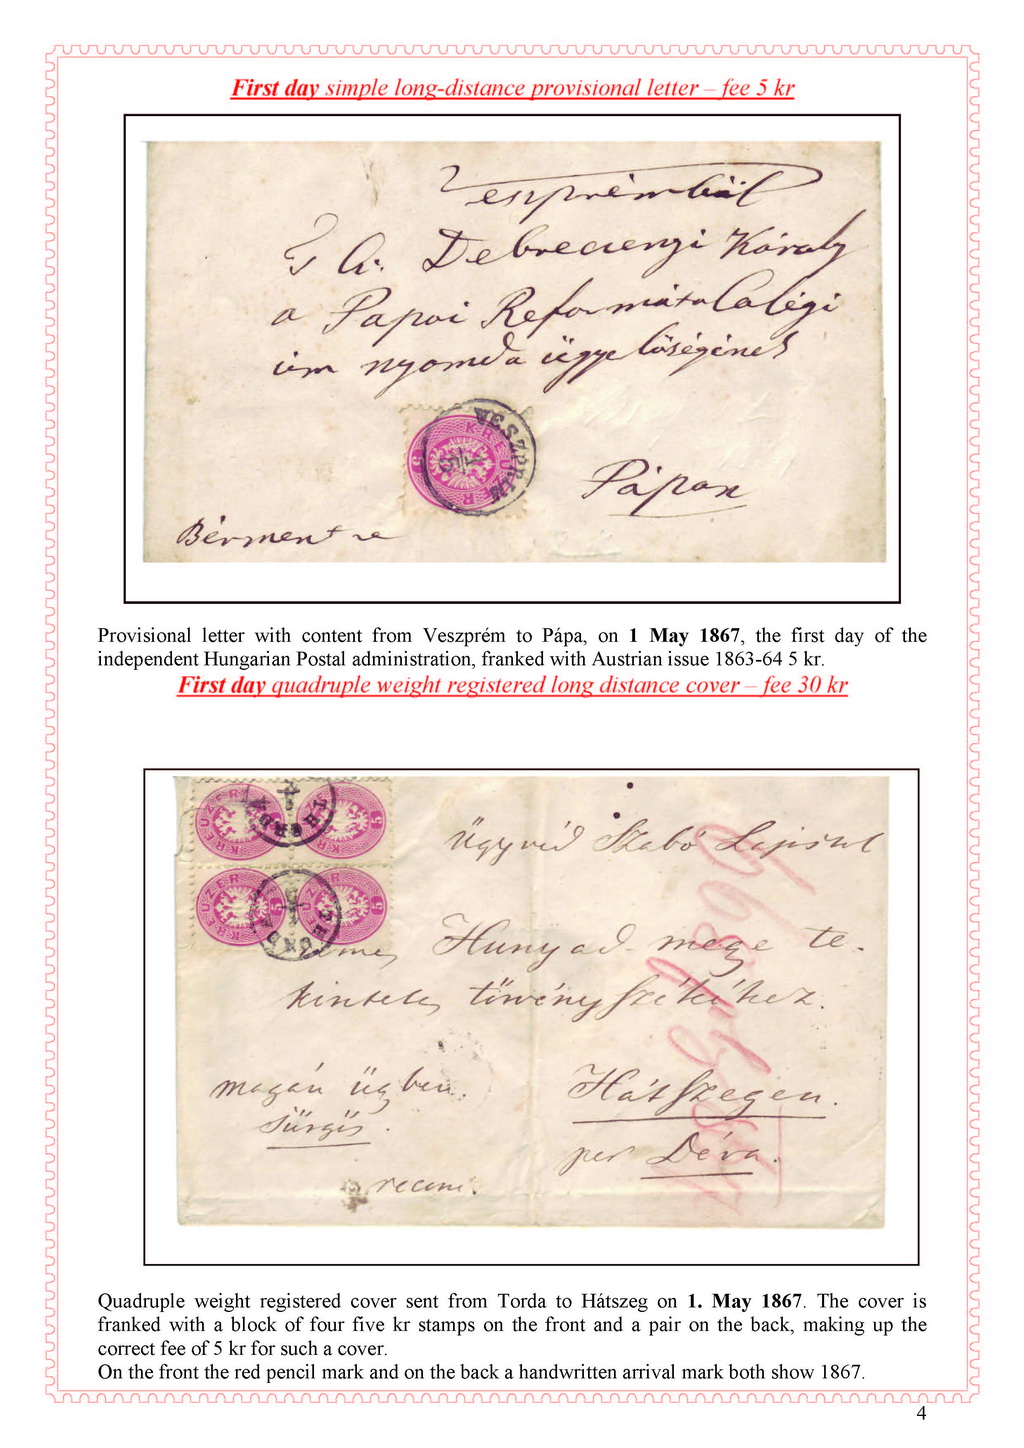 First day simple long-distance provisional letter – fee 5 kr
Veszprémből
T. Cz. Debreczenyi Károly
a Pápai Református Collégi
üm nyomda ügyelőségének
KREUZER
5
VESZPRIM
Pápán
Bérmentve
Provisional letter with content from Veszprém to Pápa, on 1 May 1867, the first day of the
independent Hungarian Postal administration, franked with Austrian issue 1863-64 5 kr.
First day quadruple weight registered long distance cover – fee 30 kr
KREUZER 5
KREUZER 5
KREUZER 5
KREUZER 5
THORDA
THORDA
ügyvéd Szabó Lajostul
Hunyad megye te-
kintetes törvényszékéhez.
magán ügyben.
Sürgős.
Hátszegen.
per Déva.
recom.
Quadruple weight registered cover sent from Torda to Hátszeg on 1. May 1867. The cover is
franked with a block of four five kr stamps on the front and a pair on the back, making up the
correct fee of 5 kr for such a cover.
On the front the red pencil mark and on the back a handwritten arrival mark both show 1867.
4